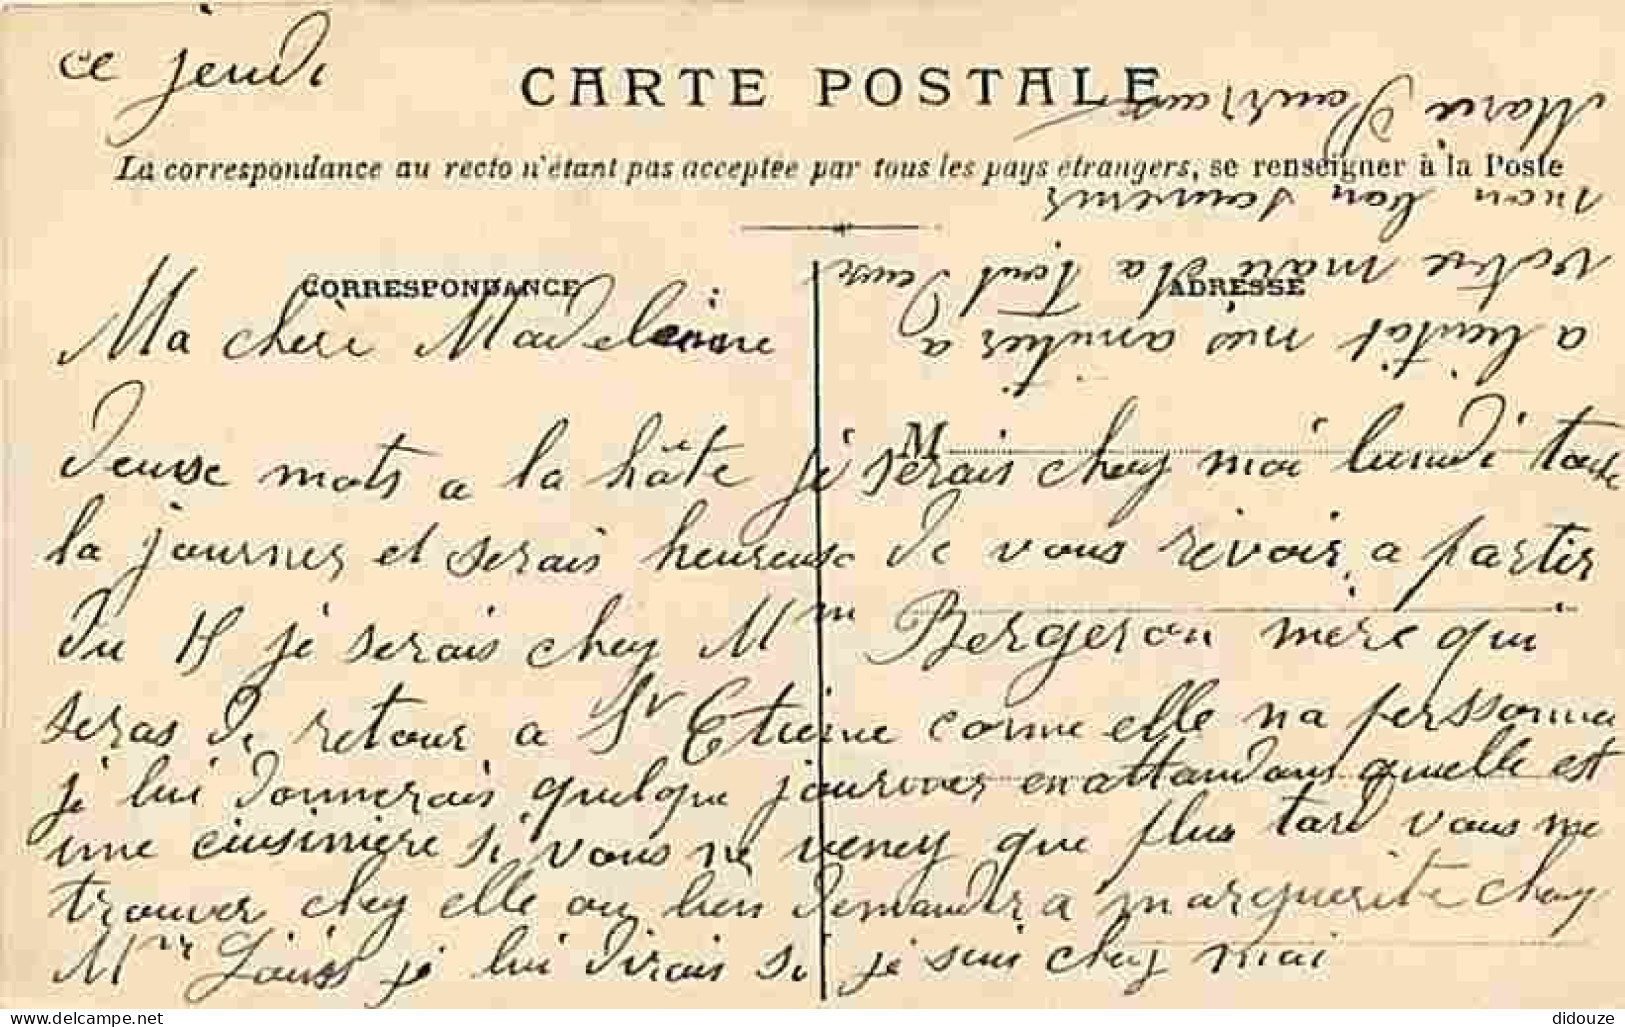 ce jeudi
CARTE POSTALE
La correspondance au recto n'étant pas acceptée par tous les pays étrangers, se renseigner à la Poste
CORRESPONDANCE
ADRESSE
Ma chère Madeleine
M
deusse mots a la hâte je serais chez moi lundi toute
la journer et serais heureuse de vous revoir, a partir
du je serais chez Mm Bergeron mère qui
seras de retour a St Etienne comme elle na perssonne
je lui donnerais quelque journer en attandans quelle est
une ciusinière si vous ne venez que plus tard vous me
trouver chez elle ou bien demander a marguerite chez
Mme je lui dirais si je suis chez moi
a bientot mes amitiés a
votre mari et a tout deuse
mon bon souvenir
Marie
didouze